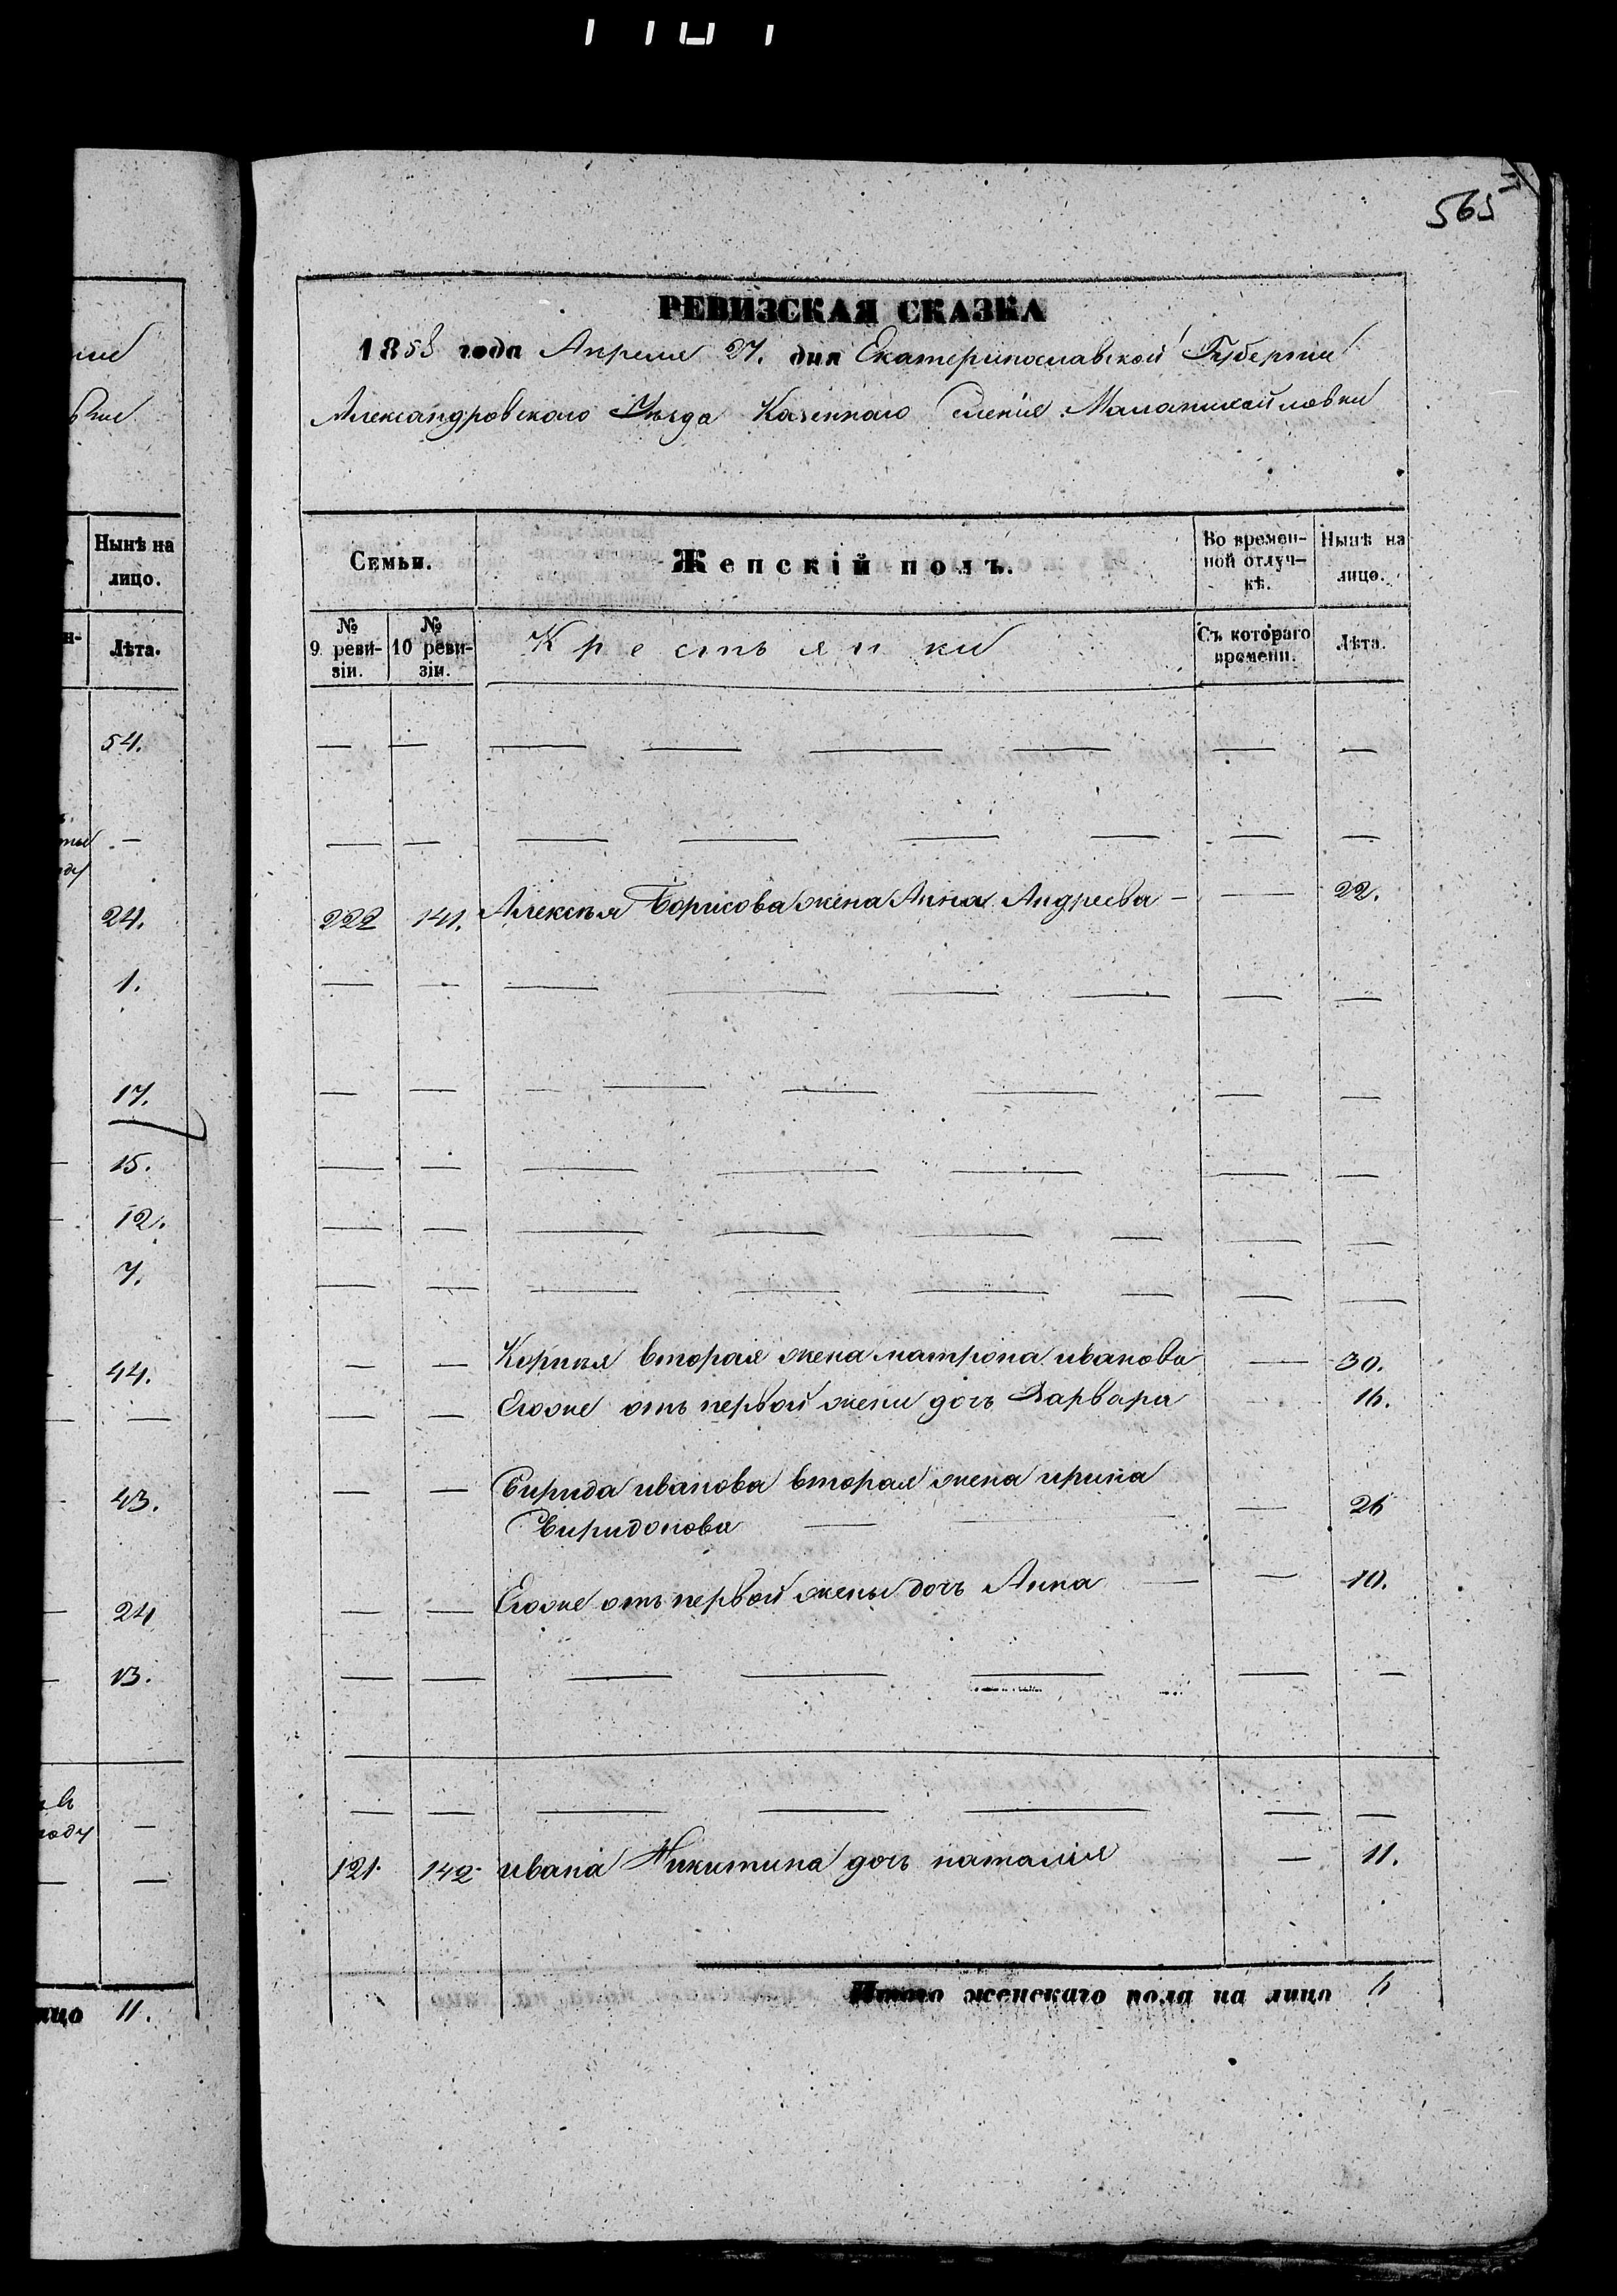 565
РЕВИЗСКАЯ СКАЗКА
1858 года Апреля 27. дня Екатеринославской Губернии
Александровского Уѣзда Казенного Селенія Маломихайловки
Нынѣ на лицо.
Лѣта.
54.
—
24.
1.
17.
15.
12.
7.
44.
—
43.
24
13.
оду —
—
лицо 11.
Семьи. Женскій полъ. Во времен-ной отлуч-кѣ. Нынѣ на лицо.
№ 9 реви-зіи. № 10 реви-зіи. Крестьянки Съ котораго времени. Лѣта.
— — — — — — — —
— — — — — — — —
222 141. Алексѣя Борисова жена Анна Андреева — — 22.
— — — — — — — —
— — — — — — — —
— — — — — — —
— — — — — — — —
— — — — — — — —
— — Корнея вторая жена матрона иванова — 30.
— — Егоже отъ первой жени дочь Варвара — 16.
— — Свирида иванова вторая жена ирина
Свиридонова — — — 26
— — Егоже отъ первой жены дочь Анна — — 10.
— — — — — — —
— — — — — — —
121. 142. ивана Никитина дочь наталія — 11.
Итого женскаго пола на лицо 6